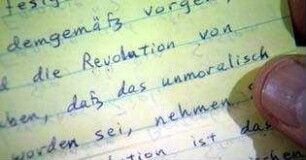 demgemäß vorge
die Revolution von
ben, daß das unmoralisch
worden sei, nehmen
tion ist das